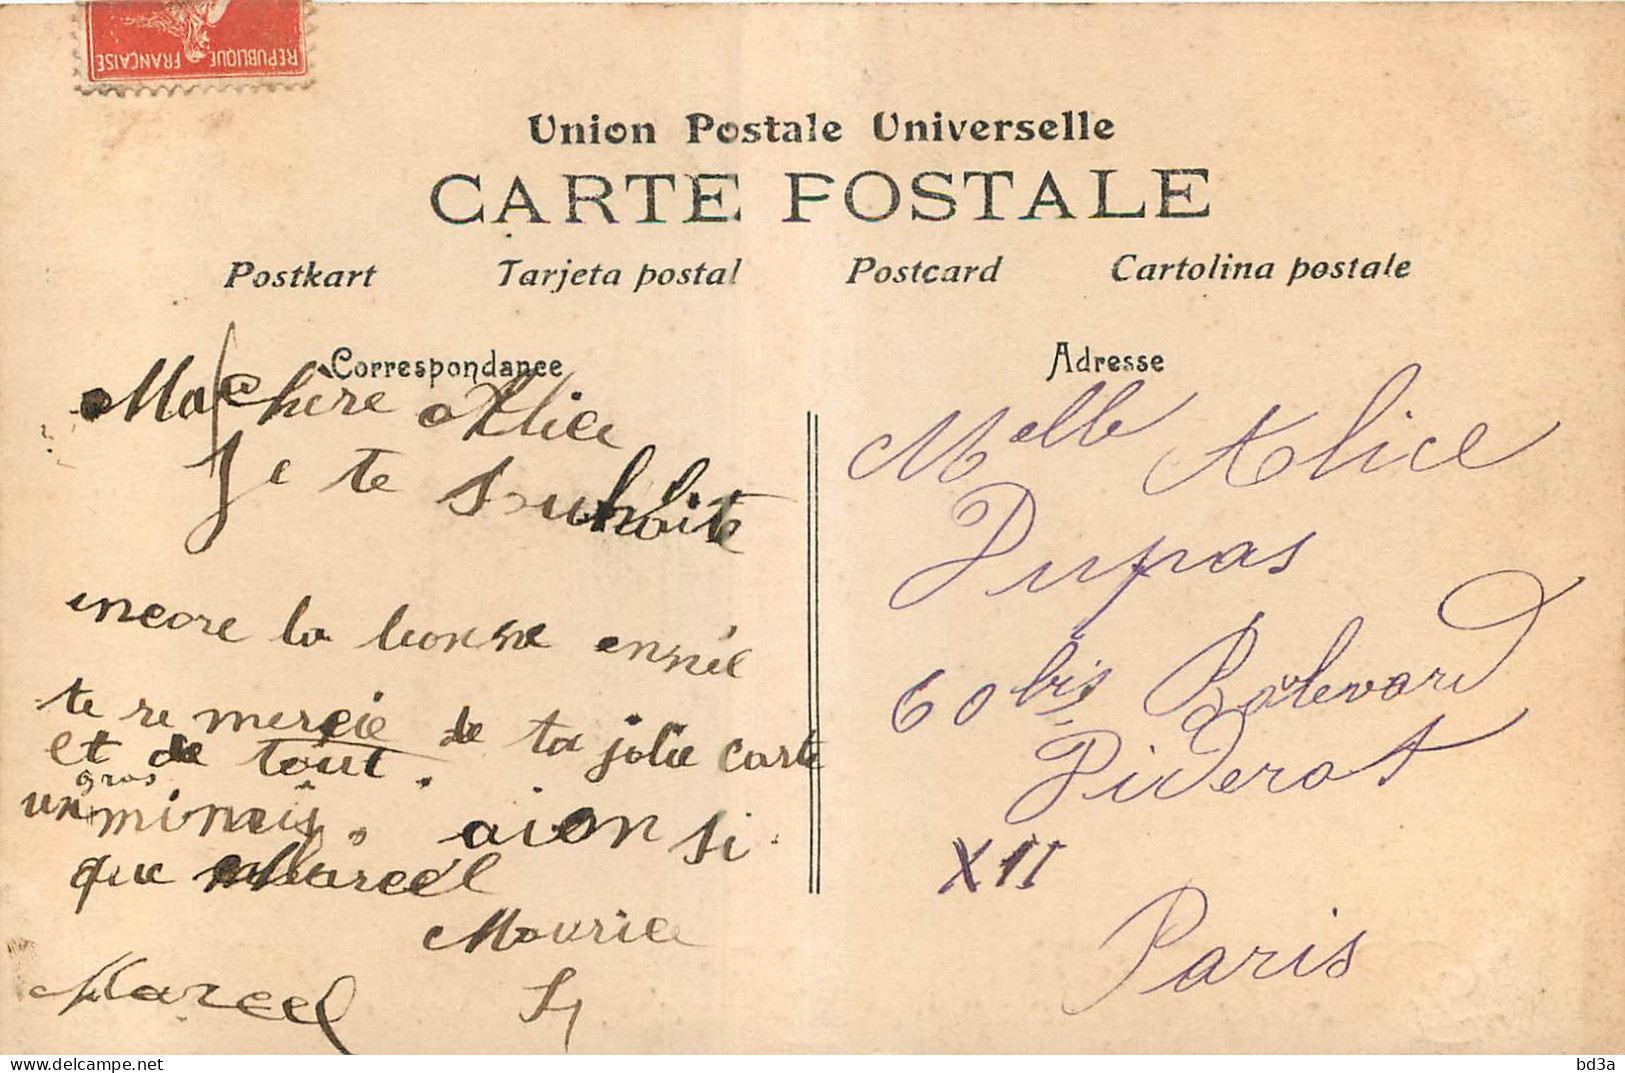 REPUBLIQUE FRANÇAISE
Union Postale Universelle
CARTE POSTALE
Postkart Tarjeta postal Postcard Cartolina postale
Correspondance
Ma chere Alice
Je te souhaite
encore la bonne année
te remercie de ta jolie carte
et de tout.
gros
un mimis. aionsi
que Marcel
Maurice
Marcel
Adresse
Melle Alice
Dupas
60 bis Boulevard
Diderot
XII
Paris
bd3a